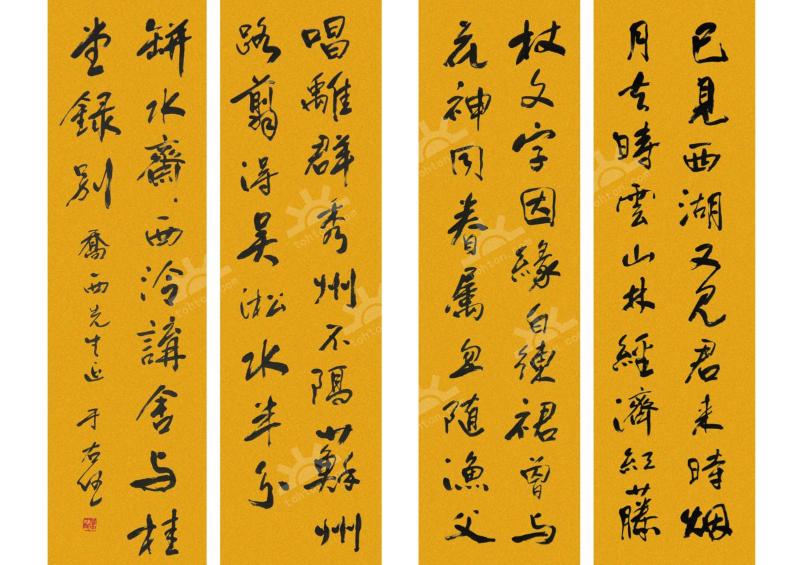 已見西湖又見君来時烟
月去時雲山林經濟紅藤
杖文字因緣白練裙曾与
花神同眷属忽随漁父
唱離群秀州不隔蘇州
路翦得吴淞水半分
缾水齋西泠講舍与桂
堂録别 喬西先生正 于右任
tohton.com